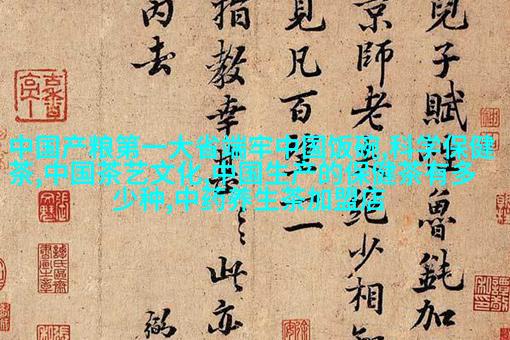 中国产粮第一大省端牢中国饭碗,科学保健
茶,中国茶艺文化,中国生产的保健茶有多
少种,中药养生茶加盟店
兒子賦性魯鈍加
京師老絶少相知
見凡百一
指教幸甚此亦
丙去
弼